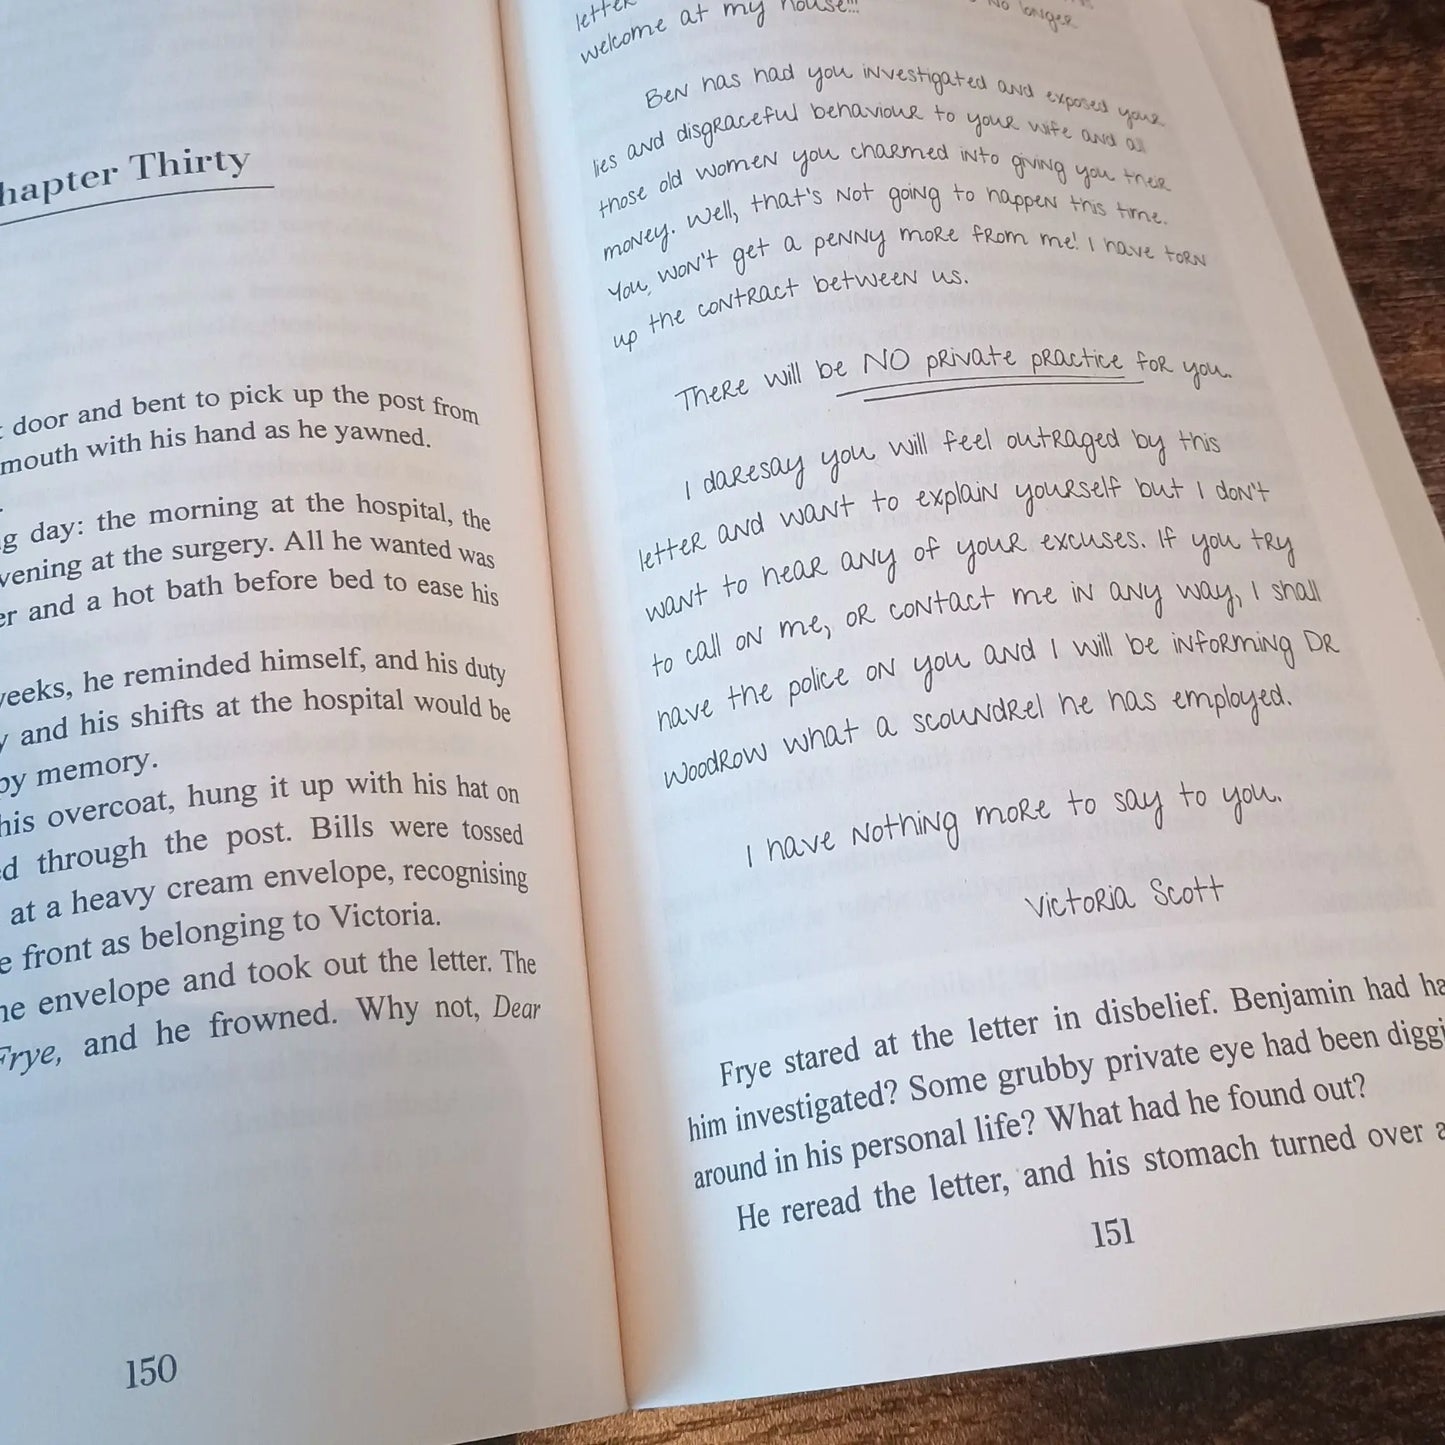 Chapter Thirty
door and bent to pick up the post from
mouth with his hand as he yawned.
day: the morning at the hospital, the
evening at the surgery. All he wanted was
and a hot bath before bed to ease his
weeks, he reminded himself, and his duty
and his shifts at the hospital would be
by memory.
his overcoat, hung it up with his hat on
through the post. Bills were tossed
at a heavy cream envelope, recognising
front as belonging to Victoria.
envelope and took out the letter. The
Frye, and he frowned. Why not, Dear
150
letter
no longer
welcome at my house!!!
Ben has had you investigated and exposed your
lies and disgraceful behaviour to your wife and all
those old women you charmed into giving you their
money. Well, that's not going to happen this time.
You, won't get a penny more from me! I have torn
up the contract between us.
There will be NO private practice for you.
I daresay you will feel outraged by this
letter and want to explain yourself but I don't
want to hear any of your excuses. If you try
to call on me, or contact me in any way, I shall
have the police on you and I will be informing Dr
Woodrow what a scoundrel he has employed.
I have nothing more to say to you.
Victoria Scott
Frye stared at the letter in disbelief. Benjamin had
him investigated? Some grubby private eye had been
around in his personal life? What had he found out?
He reread the letter, and his stomach turned over
151